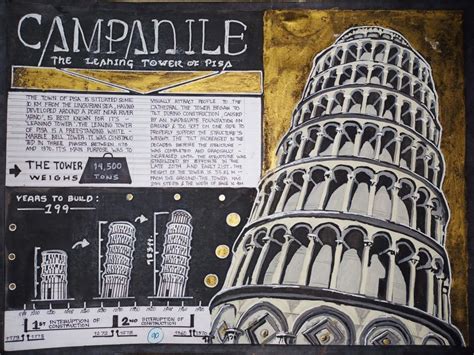 CAMPANILE
THE LEANING TOWER OF PISA
THE TOWN OF PISA IS SITUATED SOME
10 KM FROM THE SEA, HAVING
DEVELOPED AROUND A PORT NEAR RIVER
ARNO, IS BEST KNOWN FOR ITS -
LEANING TOWER. THE LEANING TOWER
OF PISA IS A FREESTANDING WHITE
MARBLE BELL TOWER. IT WAS CONSTRUC
TED IN THREE PHASES BETWEEN
AND ITS MAIN PURPOSE WAS TO
VISUALLY ATTRACT PEOPLE TO THE
CATHEDRAL. THE TOWER BEGAN TO
TILT DURING CONSTRUCTION, CAUSED
BY AN INADEQUATE FOUNDATION ON
GROUND TOO SOFT ON ONE SIDE TO
PROPERLY SUPPORT THE STRUCTURE'S
WEIGHT. THE TILT INCREASED IN THE
DECADES BEFORE THE STRUCTURE
WAS COMPLETED AND GRADUALLY
INCREASED UNTIL THE STRUCTURE WAS
STABILIZED BY EFFORTS IN THE
LATE 20TH AND EARLY 21ST. THE
HEIGHT OF THE TOWER IS
FROM THE GROUND. THE TOWER HAS
STEPS & THE WIDTH OF BASE IS
THE TOWER
WEIGHS
14,500
TONS
YEARS TO BUILD:
199
183FT
1ST INTERRUPTION OF
CONSTRUCTION
2ND INTERRUPTION OF
CONSTRUCTION